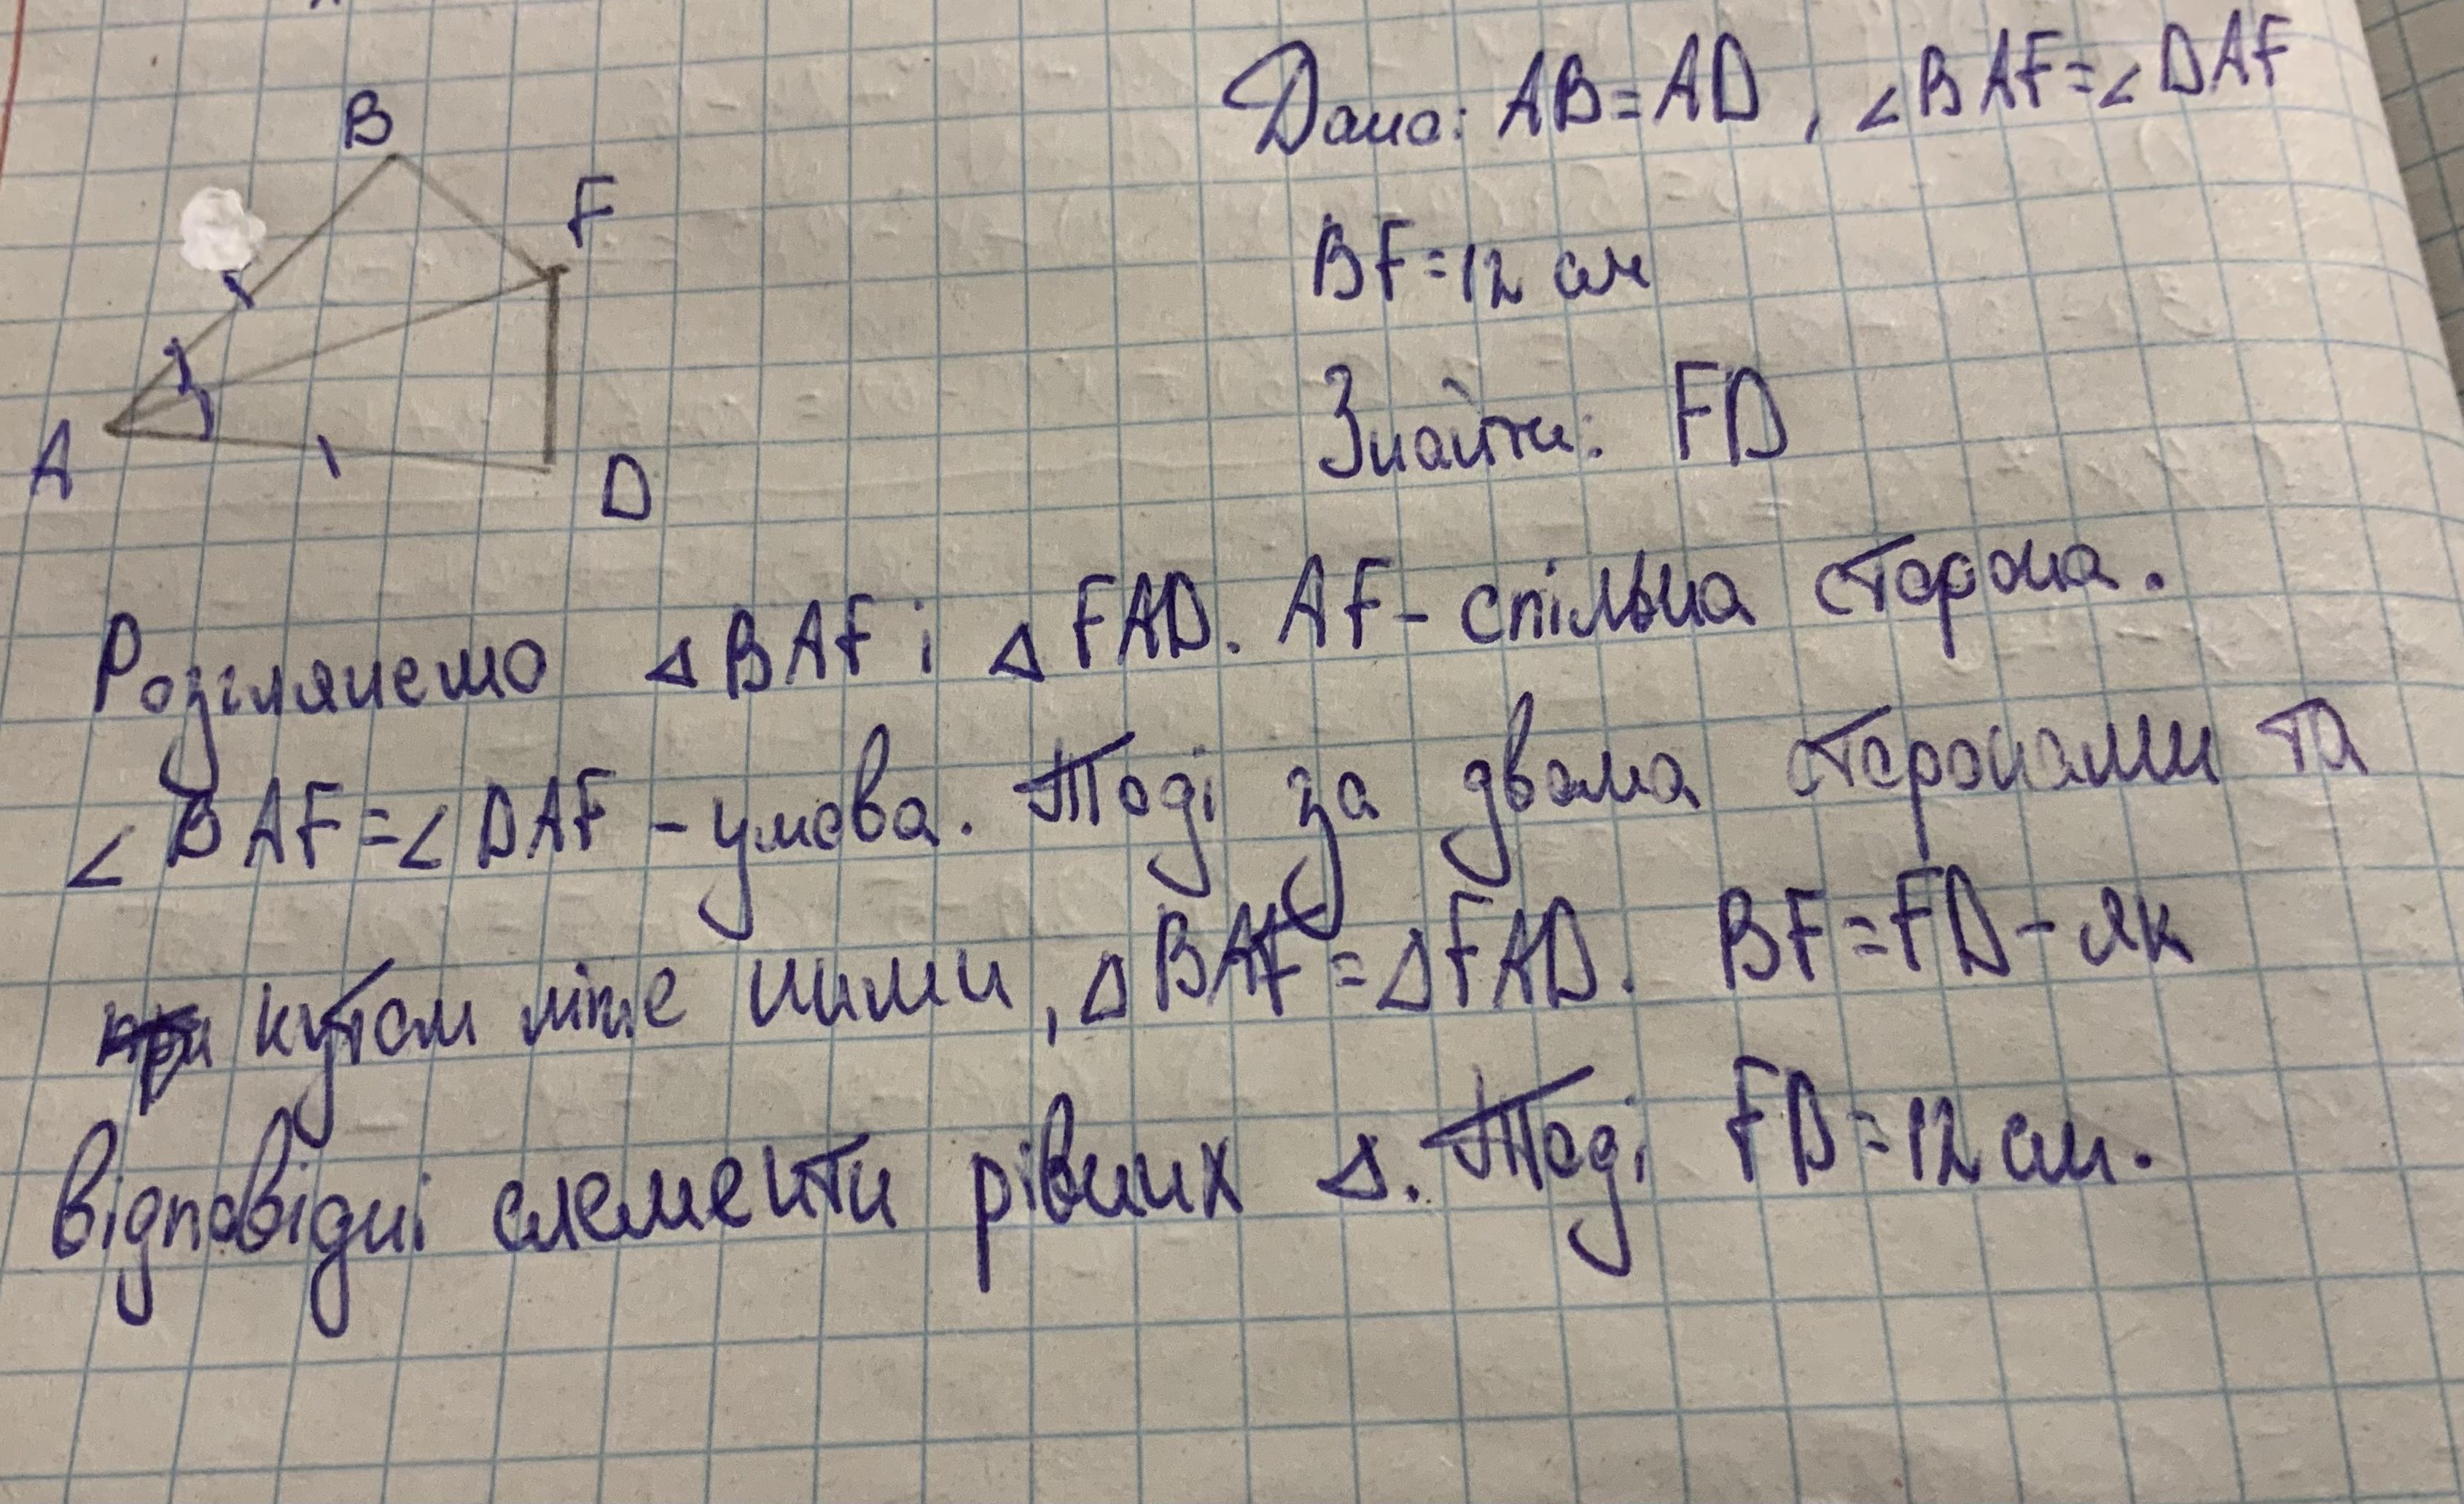 B
F
A
D
Дано: AB=AD, ∠BAF=∠DAF
BF=12 см
Знайти: FD
Розглянемо △BAF і △FAD. AF - спільна сторона.
∠BAF=∠DAF - умова. Тоді за двома сторонами та
кутом між ними, △BAF=△FAD. BF=FD - як
відповідні елементи рівних △. Тоді FD=12 см.